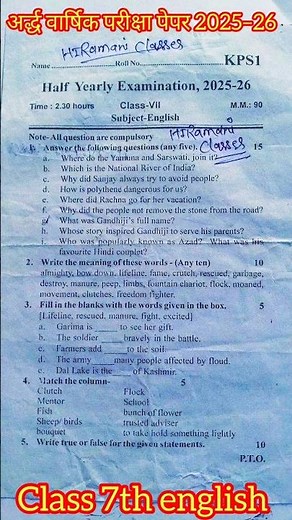 अर्द्ध वार्षिक परीक्षा पेपर 2025–26
HIRamani Classes
Name Roll No. KPS1
Half Yearly Examination, 2025-26
Time : 2.30 hours Class-VII M.M.: 90
Subject-English
HIRamani Classes
Note-All question are compulsory
1. Answer the following questions (any five). 15
a. Where do the Yamuna and Sarswati, join it?
b. Which is the National River of India?
c. Why did Sanjay always try to avoid people?
d. How is polythene dangerous for us?
e. Where did Rachna go for her vacation?
f. Why did the people not remove the stone from the road?
g. What was Gandhiji's full name?
h. Whose story inspired Gandhiji to serve his parents?
i. Who was popularly known as Azad? What was his
favourite Hindi couplet?
2. Write the meaning of these words - (Any ten) 10
almighty, bow down, lifeline, fame, crutch, rescued, garbage,
destroy, manure, peep, limbs, fountain chariot, flock, moaned,
movement, clutches, freedom fighter.
3. Fill in the blanks with the words given in the box. 5
[Lifeline, rescued, manure, fight, excited]
a. Garima is ____ to see her gift.
b. The soldier ____ bravely in the battle.
c. Farmers add ____ to the soil.
d. The army ____ many people affected by floud.
e. Dal Lake is the ____ of Kashmir.
4. Match the column- 5
Clutch Flock
Mentor School
Fish bunch of flower
Sheep/ birds trusted adviser
bouquet to take hold something lightly
5. Write true or false for the given statements. 10
P.T.O.
Class 7th english